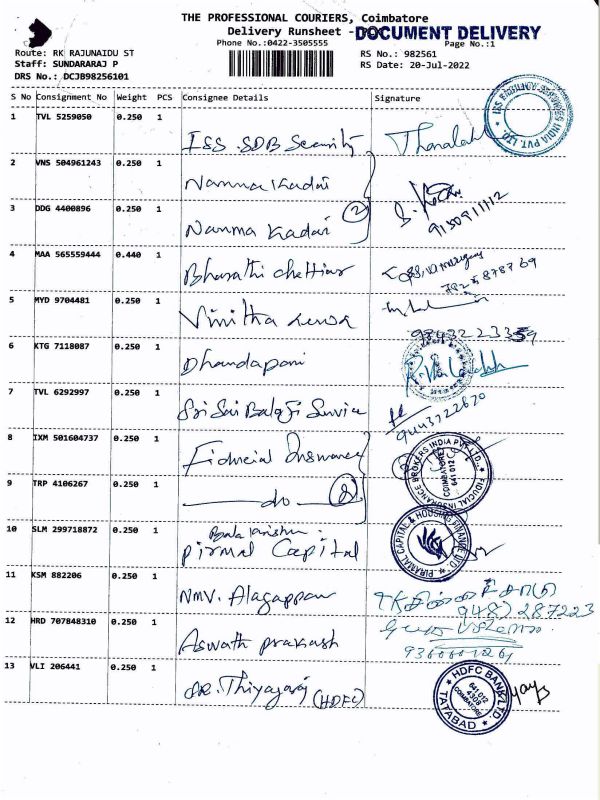 THE PROFESSIONAL COURIERS, Coimbatore
Delivery Runsheet - DOCUMENT DELIVERY
Phone No.:0422-3505555 Page No.:1
Route: RK RAJUNAIDU ST RS No.: 982561
Staff: SUNDARARAJ P RS Date: 20-Jul-2022
DRS No.: DCJB98256101
S No Consignment No Weight PCS Consignee Details Signature
1 TVL 5259050 0.250 1 ISS SDB Security
2 VNS 504961243 0.250 1 Nanma Kadai
3 DDG 4400896 0.250 1 Nanma Kadai (2) 9150911112
4 MAA 565559444 0.440 1 Bharathi chettiar
5 MYD 9704481 0.250 1 Vinitha
6 KTG 7118087 0.250 1 Dhandapani
7 TVL 6292997 0.250 1 Sri Sai Balaji Service 9443722670
8 IXM 501604737 0.250 1 Fiducial Insurance
FIDUCIAL INSURANCE BROKERS INDIA PVT. LTD. COIMBATORE 641 012
9 TRP 4106267 0.250 1 do (2)
10 SLM 299718872 0.250 1 Bala Krishn
Pirmal Capital
PIRAMAL CAPITAL & HOUSING FINANCE LTD.
11 KSM 882206 0.250 1 NMV. Alagappan
9487287223
12 HRD 707848310 0.250 1 Aswath prakash
13 VLI 206441 0.250 1 Thiyagaraj (HDFC)
HDFC BANK LTD. 641 012 COIMBATORE TATABAD